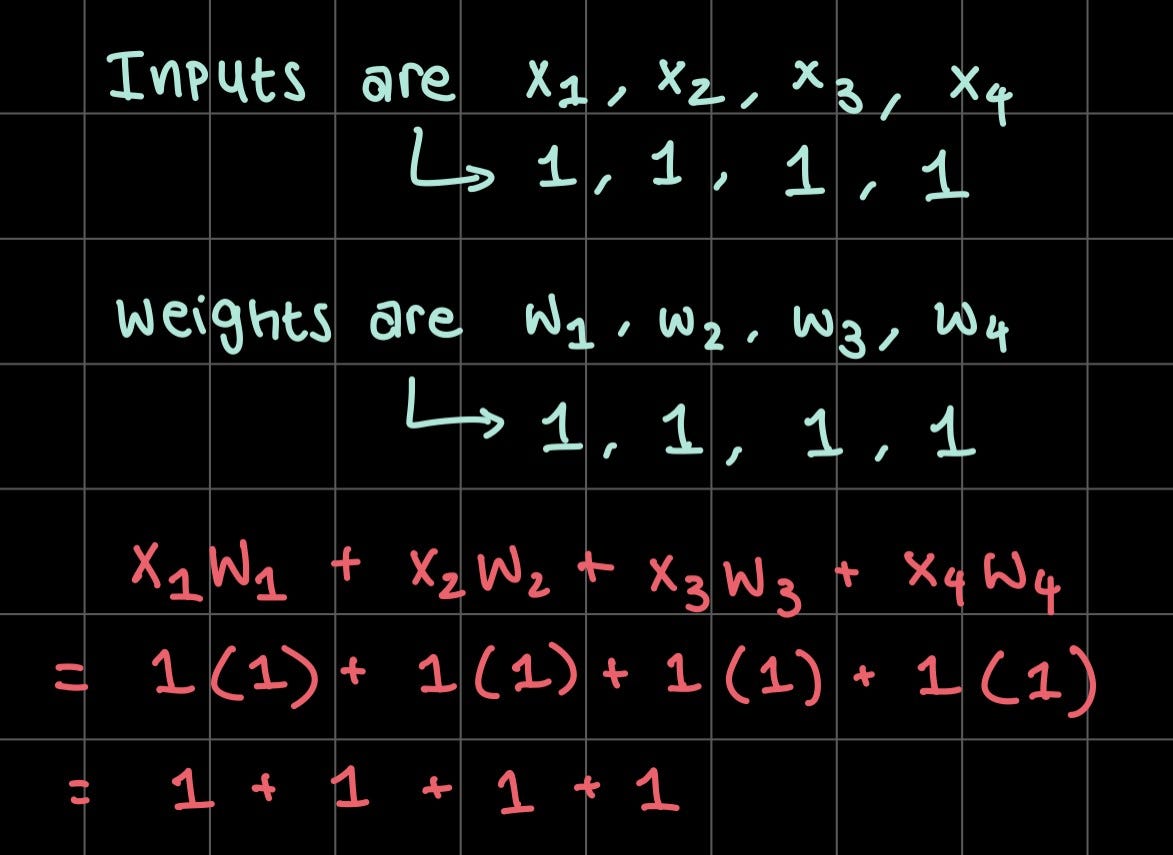 Inputs are x₁, x₂, x₃, x₄
↳ 1, 1, 1, 1
Weights are w₁, w₂, w₃, w₄
↳ 1, 1, 1, 1
x₁w₁ + x₂w₂ + x₃w₃ + x₄w₄
= 1(1) + 1(1) + 1(1) + 1(1)
= 1 + 1 + 1 + 1